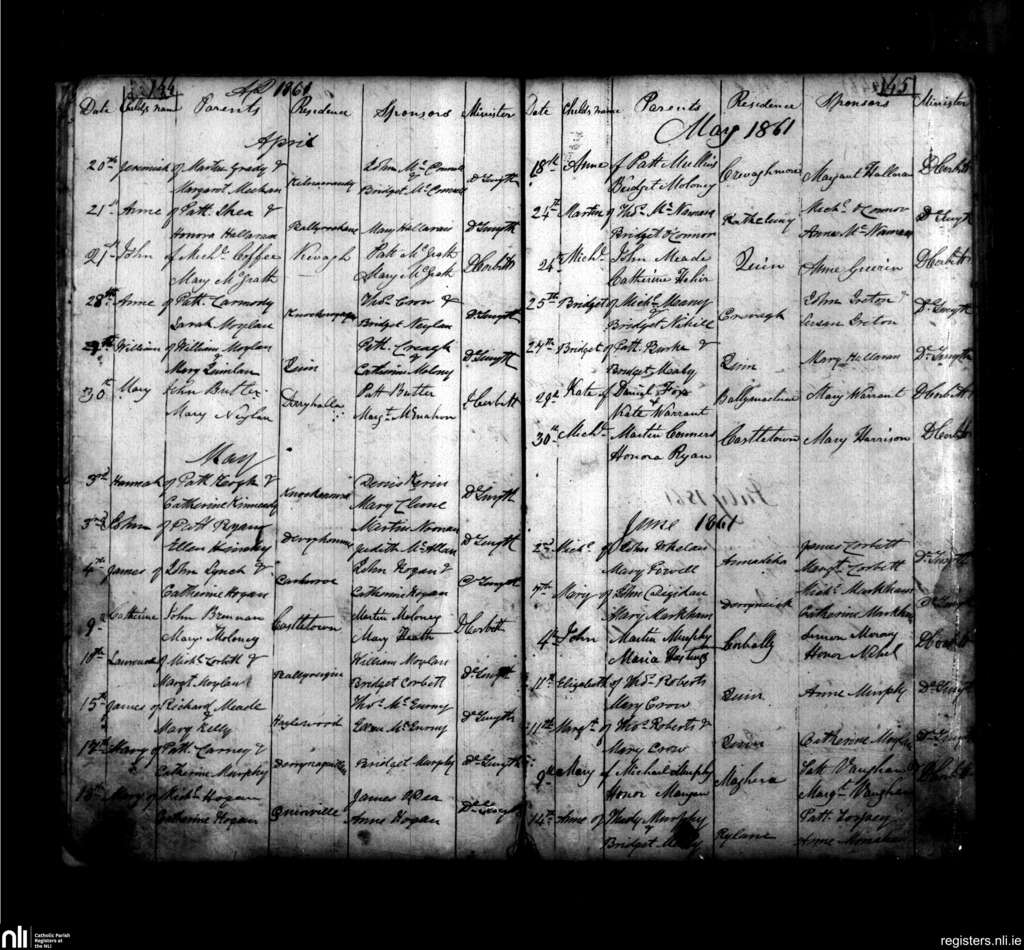 144
Apl 1861
Date Childs name Parents Residence Sponsors Minister
April
20th Jeremiah of Martin Grady & John McConnel
Margaret Meehan Bridget McConnel Dr Smyth
21st Anne of Patt Shea &
Honora Hallaran Mary Hallaran Dr Smyth
21st John of Michl Coffee Kevagh Patt McGrath D Corbett
Mary McGrath Mary McGrath
28th Anne of Patt Carmody Thos Coon &
Sarah Moylan Bridget Neylan Dr Smyth
29th William of William Moylan Patt Creagh
Mary Quinlan Quin & Catherine Molony Dr Smyth
30th Mary John Butler Derrykalla Patt Butler D Corbett
Mary Neylan Margt McMahon
May
3rd Hannah of Patt Keogh & Denis Kerin
Catherine Kennedy Mary Clune Dr Smyth
3rd John of Patt Ryan & Martin Noonan
Ellen Judith McAllan Dr Smyth
4th James of John Lynch & John Hogan &
Catherine Hogan Catherine Hogan Dr Smyth
9th Catherine John Brennan Castletown Martin Moloney D Corbett
Mary Moloney Mary Heath
10th Laurence of Michl Corbett & William Moylan
Margt Moylan Bridget Corbett Dr Smyth
15th James of Richard Meade Thos McEnemy
& Mary Kelly Hazlewood Ellen McEnemy Dr Smyth
17th Mary of Patt Carney &
Catherine Murphy Bridget Murphy Dr Smyth
18th Mary of Michl Hogan James O Dea
Catherine Hogan Quinville Anne Hogan Dr Smyth
145
Date Childs name Parents Residence Sponsors Minister
May 1861
18th Anne of Patt Mullins Crevaghmore Margaret Halloran D Corbett
Bridget Moloney
24th Martin of Thos McNamara Michl O Connor
Bridget O Connor Anne McNamara Dr Smyth
24th Michl John Meade Quin Anne Guerin D Corbett
Catherine Hehir
25th Bridget of Michl Meany John Groton &
& Bridget Nihill Susan Groton Dr Smyth
27th Bridget of Patt Burke &
Bridget Mealy Quin Mary Hallaran Dr Smyth
29th Kate of Daniel Fox Mary Warrant D Corbett
& Kate Warrant
30th Michl Martin Conners Castletown Mary Harrison D Corbett
Honora Ryan
July 1861
June 1861
2nd Michl of John Whelan James Corbett
Mary Powell Margt Corbett Dr Smyth
7th Mary of John Deighan Michl Markham
Mary Markham Catherine Markham Dr Smyth
4th John Martin Murphy Corbally Simon Morony D Corbett
Maria Hastings Honor Nihel
11th Elizabeth of Thos Roberts
Mary Crow Quin Anne Murphy Dr Smyth
11th Margt of Thos Roberts &
Mary Crow Quin Catherine Moylan Dr Smyth
9th Mary of Michael Murphy Maghera Patt Vaughan D Corbett
Honor Mangan Margt Vaughan
14th Anne of Thady Murphy Patt
& Bridget Mealy Rylane Anne Monahan
nli Catholic Parish
Registers at
the NLI
registers.nli.ie